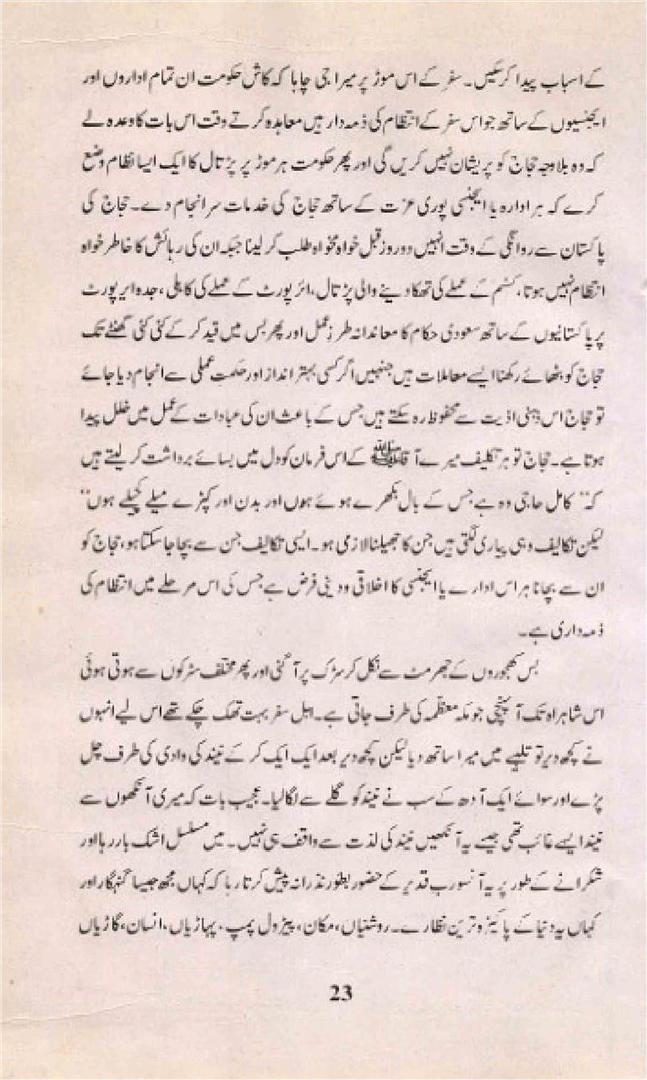 کے اسباب پیدا کر سکیں۔ سفر کے اس موڑ پر میرا جی چاہا کہ کاش حکومت ان تمام اداروں اور
ایجنسیوں کے ساتھ جو اس سفر کے انتظام کی ذمہ دار ہیں معاہدہ کرتے وقت اس بات کا وعدہ لے
کہ وہ بلاوجہ حجاج کو پریشان نہیں کریں گی اور پھر حکومت ہر موڑ پر پڑتال کا ایک ایسا نظام وضع
کرے کہ ہر ادارہ یا ایجنسی پوری عزت کے ساتھ حجاج کی خدمات سرانجام دے۔ حجاج کی
پاکستان سے روانگی کے وقت انہیں دو روز قبل خواہ مخواہ طلب کر لینا جبکہ ان کی رہائش کا خاطر خواہ
انتظام نہیں ہوتا، کسٹم کے عملے کی تھکا دینے والی پڑتال، ائر پورٹ کے عملے کی کاہلی، جدہ ائر پورٹ
پر پاکستانیوں کے ساتھ سعودی حکام کا معاندانہ طرز عمل اور پھر بس میں قید کر کے کئی کئی گھنٹے تک
حجاج کو بٹھائے رکھنا ایسے معاملات ہیں جنہیں اگر کسی بہتر انداز اور حکمت عملی سے انجام دیا جائے
تو حجاج اس ذہنی اذیت سے محفوظ رہ سکتے ہیں جس کے باعث ان کی عبادات کے عمل میں خلل پیدا
ہوتا ہے۔ حجاج تو ہر تکلیف میرے آقا ﷺ کے اس فرمان کو دل میں بسائے برداشت کر لیتے ہیں
کہ ”کامل حاجی وہ ہے جس کے بال بکھرے ہوئے ہوں اور بدن اور کپڑے میلے کچیلے ہوں“
لیکن تکالیف وہی پیاری لگتی ہیں جن کا جھیلنا لازمی ہو۔ ایسی تکالیف جن سے بچا جا سکتا ہو، حجاج کو
ان سے بچانا ہر اس ادارے یا ایجنسی کا اخلاقی و دینی فرض ہے جس کی اس مرحلے میں انتظام کی
ذمہ داری ہے۔
بس کھجوروں کے جھرمٹ سے نکل کر سڑک پر آ گئی اور پھر مختلف سڑکوں سے ہوتی ہوئی
اس شاہراہ تک آ پہنچی جو مکہ معظمہ کی طرف جاتی ہے۔ اہل سفر بہت تھک چکے تھے اس لیے انہوں
نے کچھ دیر تو تلبیے میں میرا ساتھ دیا لیکن کچھ دیر بعد ایک ایک کر کے نیند کی وادی کی طرف چل
پڑے اور سوائے ایک آدھ کے سب نے نیند کو گلے سے لگا لیا۔ عجیب بات کہ میری آنکھوں سے
نیند ایسے غائب تھی جیسے یہ آنکھیں نیند کی لذت سے واقف ہی نہیں۔ میں مسلسل اشک بار رہا اور
شکرانے کے طور پر یہ آنسو رب قدیر کے حضور بطور نذرانہ پیش کرتا رہا کہ کہاں مجھ جیسا گنہگار اور
کہاں یہ دنیا کے پاکیزہ ترین نظارے۔ روشنیاں، مکان، پیڑول پمپ، پہاڑیاں، انسان، گاڑیاں
23